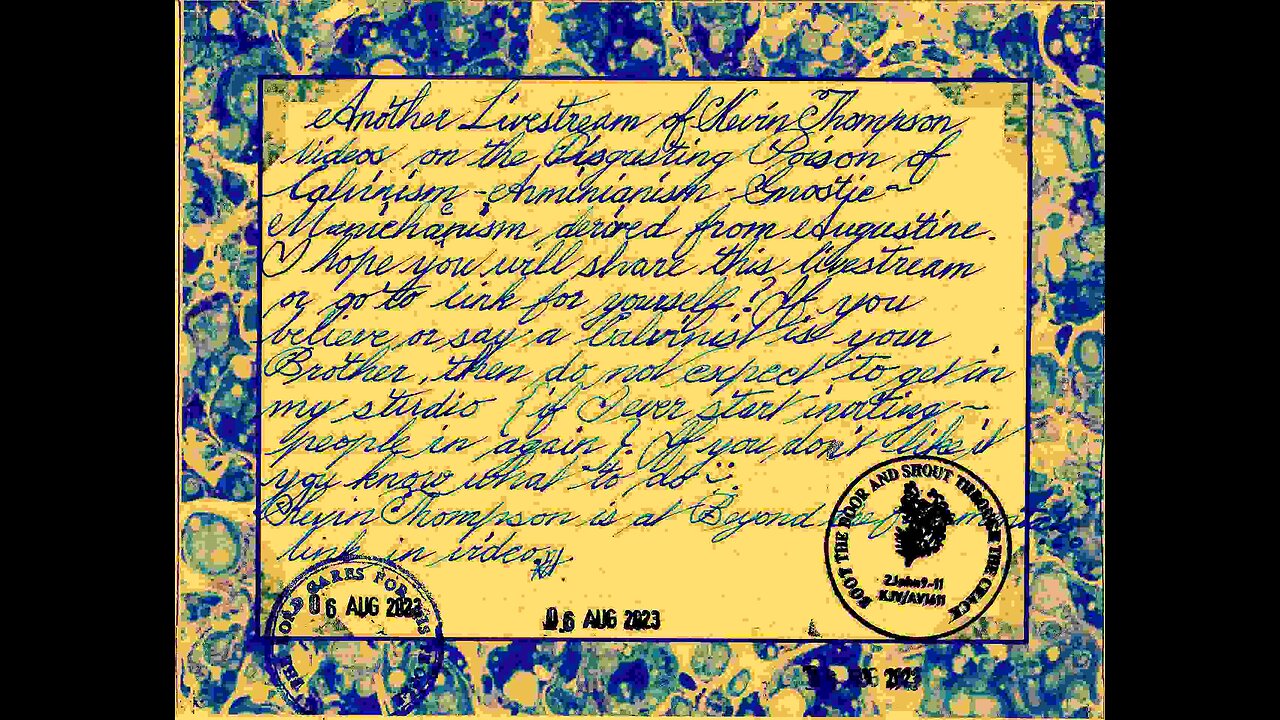 Another Livestream of Kevin Thompson
videos on the Disgusting Poison of
Calvinism - Arminianism - Gnostic ~
Manichaeism derived from Augustine.
I hope you will share this livestream
or go to link for yourself? If you
believe or say a Calvinist is your
Brother, then do not expect to get in
my studio {if I ever start inviting ~
people in again}. If you don't like it
you know what to do ~.
Kevin Thompson is at Beyond
link in video
BOOT THE DOOR AND SHOUT THROUGH THE CRACK
2John9-11
KJV/AV1611
THE LORD CARES FOR HIS
06 AUG 2023
06 AUG 2023
AUG 2023